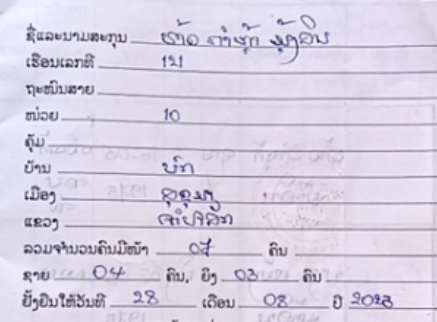 ຊື່ແລະນາມສະກຸນ ທ້າວ ຄຳຫຼ້າ
ເຮືອນເລກທີ 121
ຖະໜົນສາຍ
ໜ່ວຍ 10
ຄຸ້ມ
ບ້ານ ບົກ
ເມືອງ ສຸຂຸມາ
ແຂວງ ຈຳປາສັກ
ລວມຈຳນວນຄົນມີໜ້າ 07 ຄົນ
ຊາຍ 04 ຄົນ, ຍິງ 03 ຄົນ
ຢັ້ງຢືນໃຫ້ວັນທີ 28 ເດືອນ 08 ປີ 2023